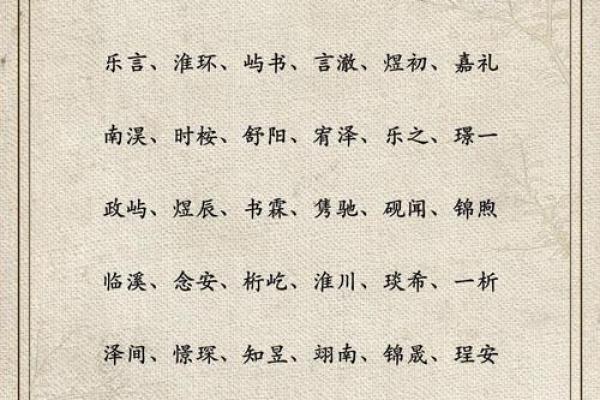 乐言、淮环、屿书、言澈、煜初、嘉礼
南淏、时桉、舒阳、宥泽、乐之、璟一
政屿、煜辰、书霖、隽驰、砚闻、锦煦
临溪、念安、桁屹、淮川、琰希、一析
泽间、憬琛、知昱、翊南、锦晟、珵安